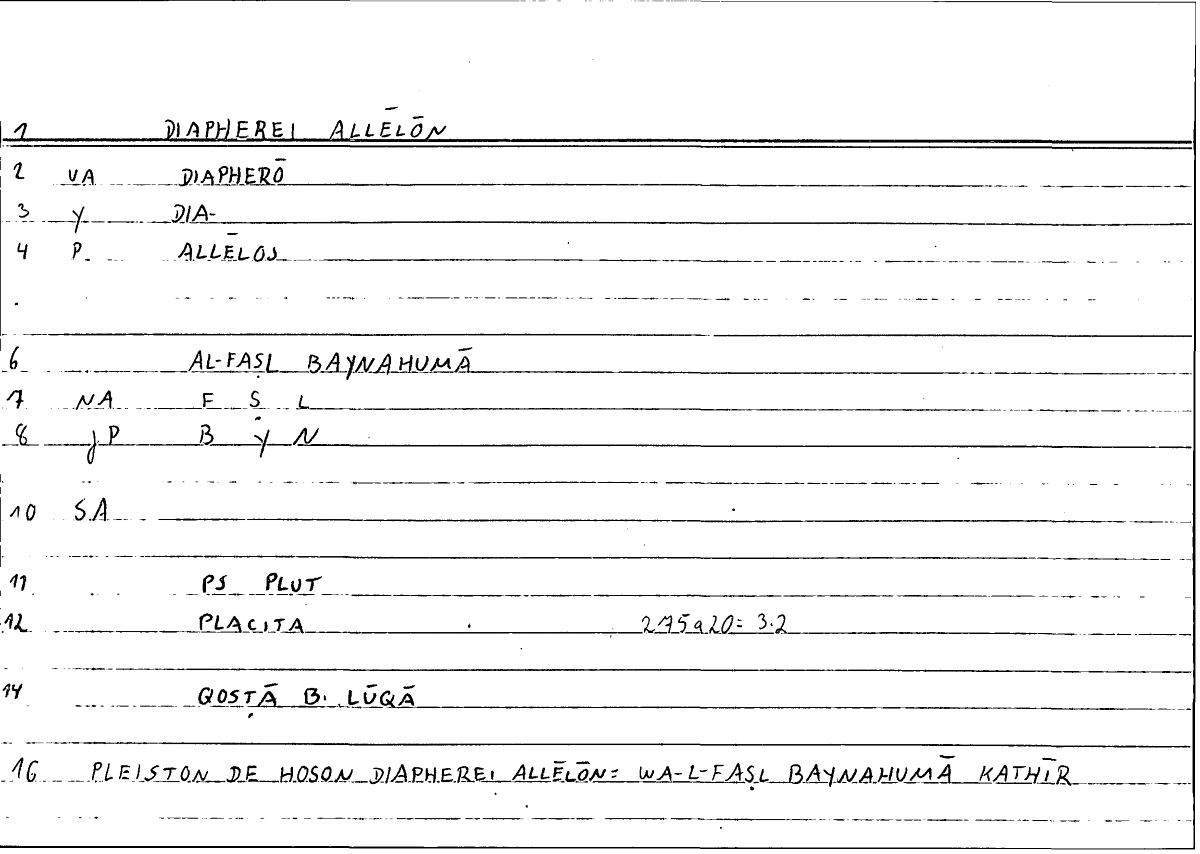 1 DIAPHEREI ALLĒLŌN
2 VA DIAPHERŌ
3 Y DIA-
4 P ALLĒLOS
6 AL-FAṢL BAYNAHUMĀ
7 NA F Ṣ L
8 jP B Y N
10 SA
11 PS PLUT
12 PLACITA 275a20= 3.2
14 QOSṬĀ B. LŪQĀ
16 PLEISTON DE HOSON DIAPHEREI ALLĒLŌN= WA-L-FAṢL BAYNAHUMĀ KATHĪR